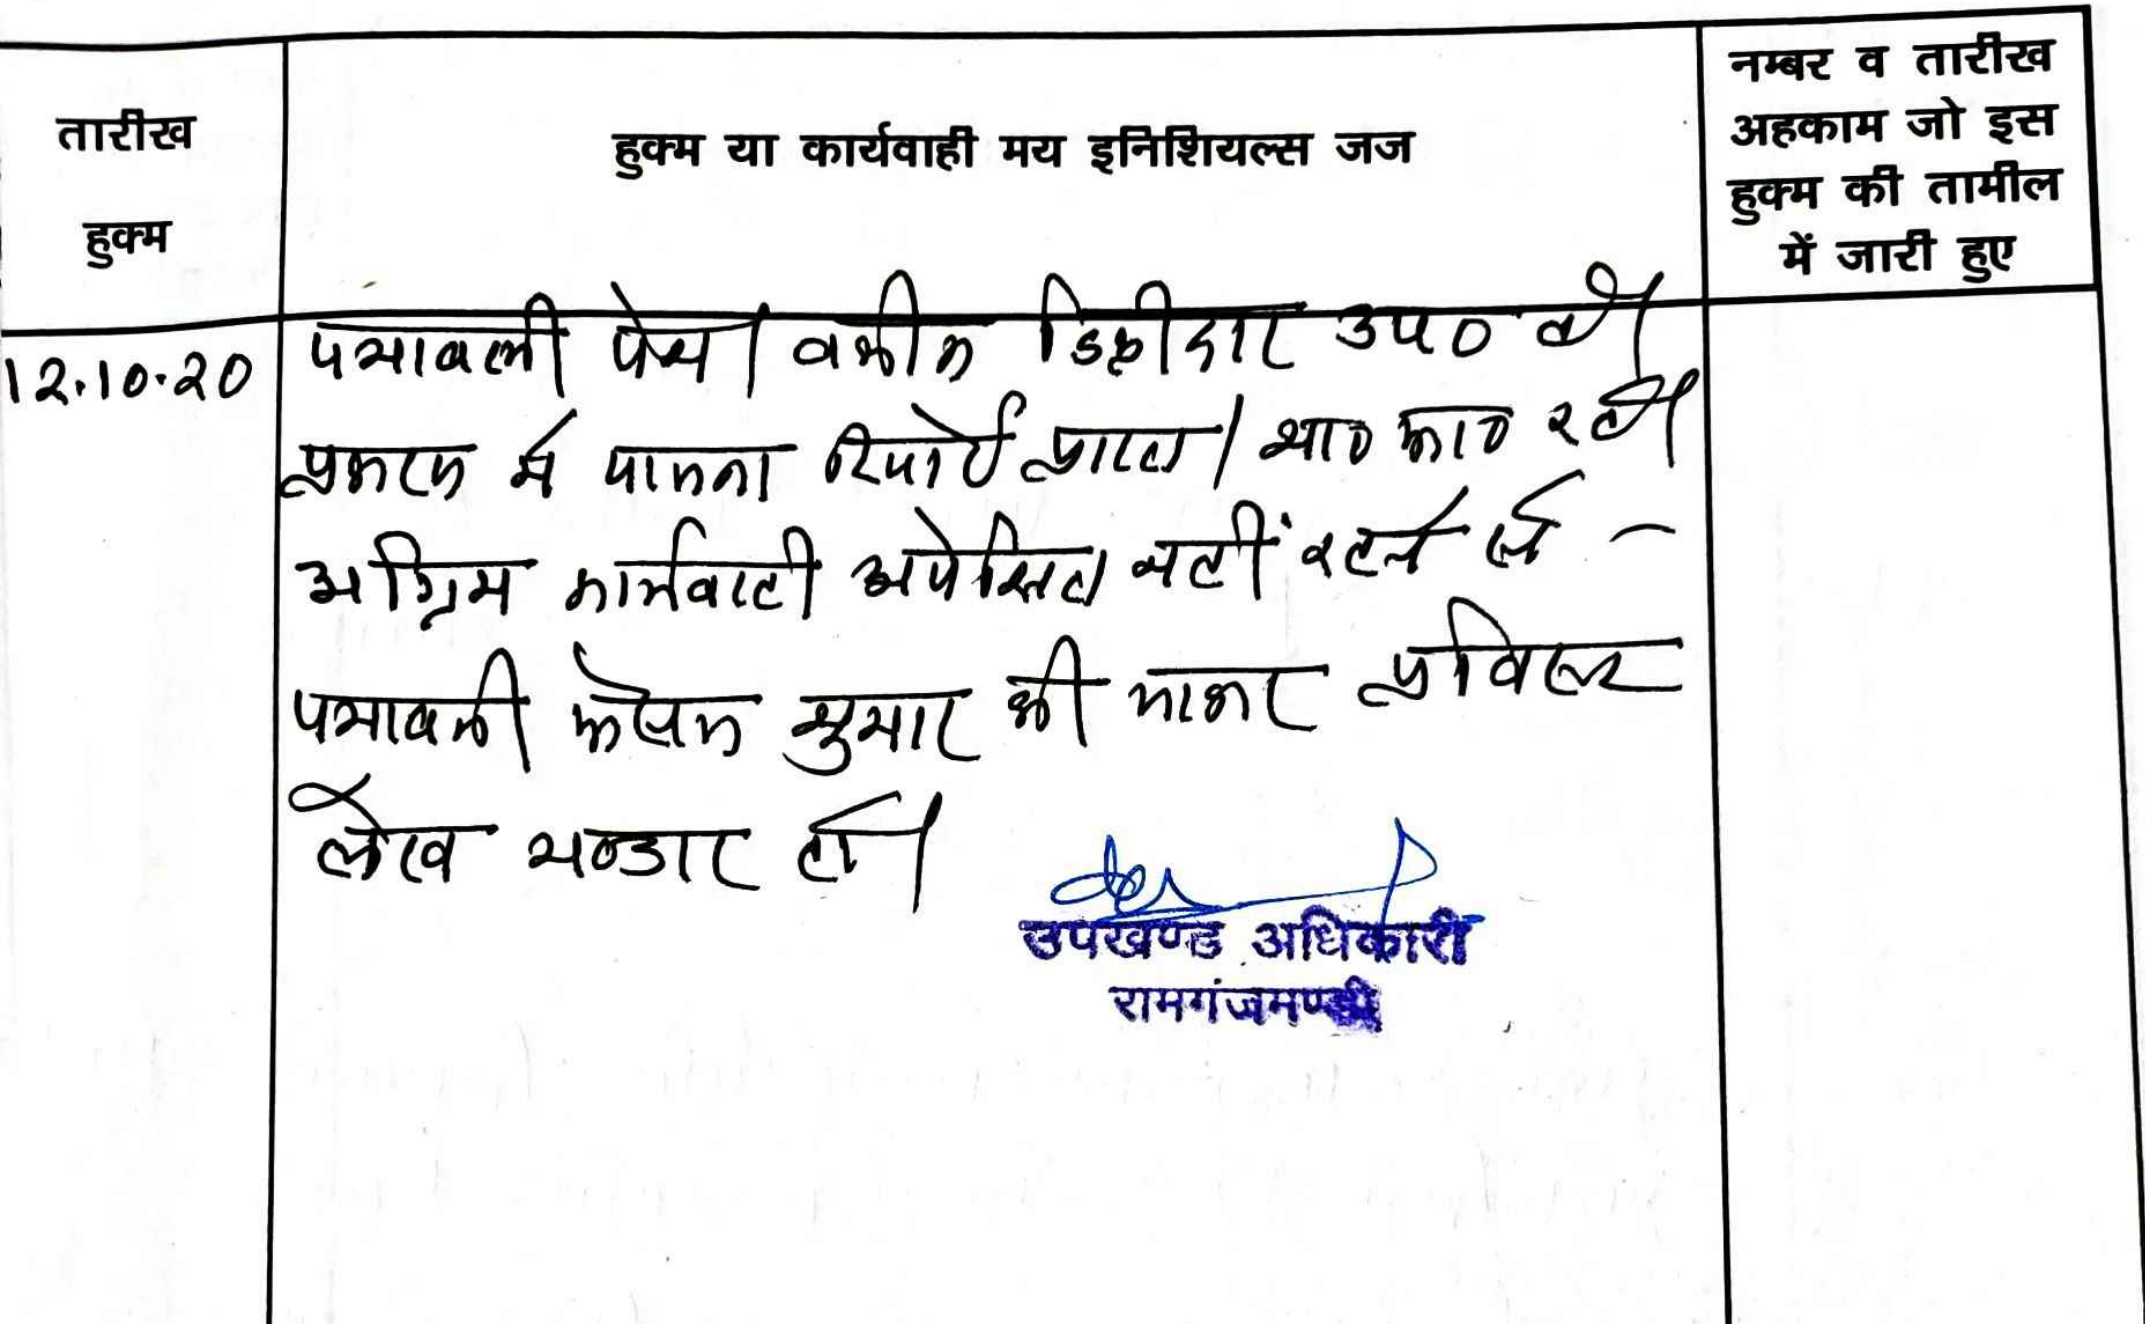 तारीख
हुक्म
हुक्म या कार्यवाही मय इनिशियल्स जज
नम्बर व तारीख
अहकाम जो इस
हुक्म की तामील
में जारी हुए
12.10.20
पत्रावली पेश। वकील डिक्रीदार उप० है।
प्रकरण में पालना रिपोर्ट प्राप्त।
अग्रिम कार्यवाही अपेक्षित नहीं रहने से -
पत्रावली फैसल शुमार की जाकर
लेख भण्डार हो।
उपखण्ड अधिकारी
रामगंजमण्डी